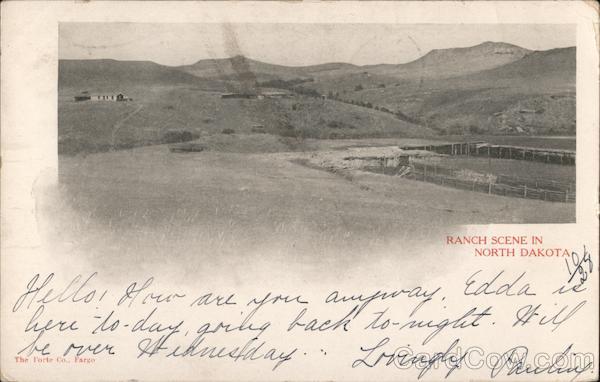 RANCH SCENE IN
NORTH DAKOTA
Hello! How are you anyway. Edda is
here to-day, going back to-night. Will
be over Wednesday...
Lovingly
The Forte Co., Fargo
CardCow.com